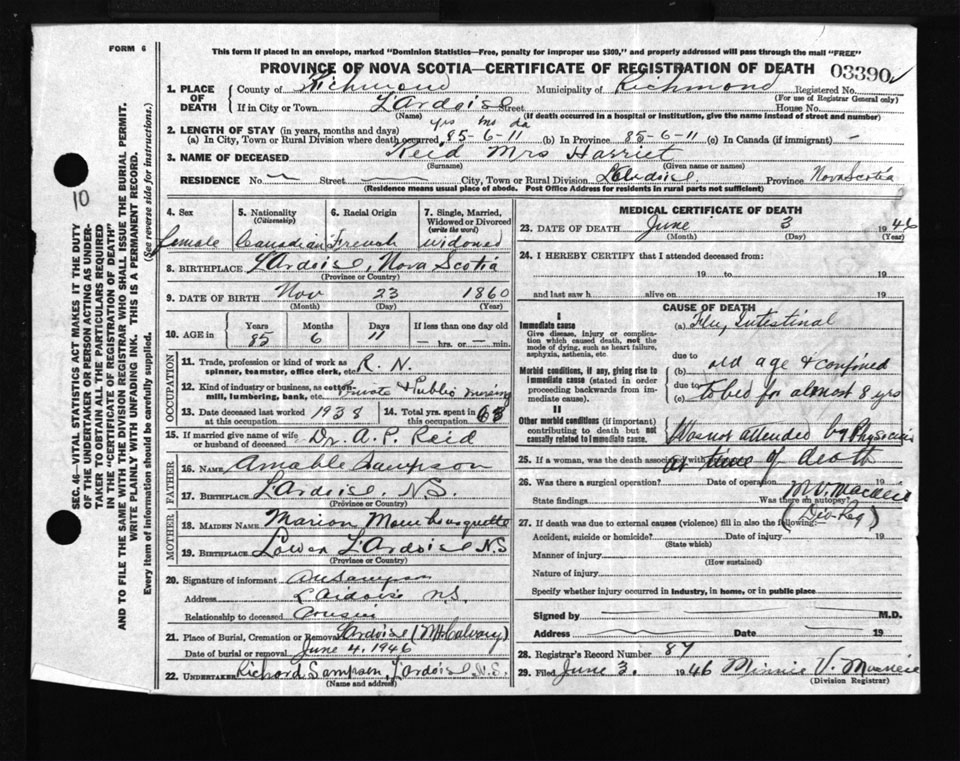 FORM 6
This form if placed in an envelope, marked "Dominion Statistics—Free, penalty for improper use $300," and properly addressed will pass through the mail "FREE"
PROVINCE OF NOVA SCOTIA—CERTIFICATE OF REGISTRATION OF DEATH 03390
1. PLACE OF DEATH
County of Richmond Municipality of Richmond Registered No.
(For use of Registrar General only)
If in City or Town L'Ardoise Street House No.
(Name) (If death occurred in a hospital or institution, give the name instead of street and number)
yrs mo da
2. LENGTH OF STAY (in years, months and days)
(a) In City, Town or Rural Division where death occurred 85-6-11 (b) In Province 85-6-11 (c) In Canada (if immigrant) —
3. NAME OF DECEASED Reid Mrs Harriet
(Surname) (Given name or names)
RESIDENCE No. Street City, Town or Rural Division L'Ardoise Province Nova Scotia
(Residence means usual place of abode. Post Office Address for residents in rural parts not sufficient)
4. Sex
female
5. Nationality
(Citizenship)
Canadian
6. Racial Origin
French
7. Single, Married, Widowed or Divorced
(write the word)
widowed
8. BIRTHPLACE L'Ardoise, Nova Scotia
(Province or Country)
9. DATE OF BIRTH Nov 23 1860
(Month) (Day) (Year)
10. AGE in
Years Months Days If less than one day old
85 6 11 — hrs. or — min.
OCCUPATION
11. Trade, profession or kind of work as
spinner, teamster, office clerk, etc. R. N.
12. Kind of industry or business, as cotton-
mill, lumbering, bank, etc. Private & Public nursing
13. Date deceased last worked at this occupation 1938
14. Total yrs. spent in this occupation
15. If married give name of wife or husband of deceased Dr. A. P. Reid
FATHER
16. NAME Amable Sampson
17. BIRTHPLACE L'Ardoise, N.S.
(Province or Country)
MOTHER
18. MAIDEN NAME Marion Mombourquette
19. BIRTHPLACE Lower L'Ardoise N.S
(Province or Country)
20. Signature of informant Sampson
Address L'Ardoise N.S.
Relationship to deceased Cousin
21. Place of Burial, Cremation or Removal L'Ardoise (Mt Calvary)
Date of burial or removal June 4, 1946
22. UNDERTAKER Richard Sampson, L'Ardoise N.S.
(Name and address)
MEDICAL CERTIFICATE OF DEATH
23. DATE OF DEATH June 3 1946
(Month) (Day) (Year)
24. I HEREBY CERTIFY that I attended deceased from:
19 to 19
and last saw h alive on 19
CAUSE OF DEATH
I
Immediate cause
Give disease, injury or complication which caused death, not the mode of dying, such as heart failure, asphyxia, asthenia, etc.
(a) Flu, Intestinal
due to
Morbid conditions, if any, giving rise to immediate cause (stated in order proceeding backwards from immediate cause).
(b) old age & confined
due to
(c) to bed for almost 8 yrs
II
Other morbid conditions (if important) contributing to death but not causally related to immediate cause.
Was not attended by Physician
at time of death
25. If a woman, was the death associated with
26. Was there a surgical operation? Date of operation
State findings Was there an autopsy?
(Div Reg)
27. If death was due to external causes (violence) fill in also the following:—
Accident, suicide or homicide? Date of injury 19
(State which)
Manner of injury
(How sustained)
Nature of injury
Specify whether injury occurred in industry, in home, or in public place
Signed by M.D.
Address Date 19
28. Registrar's Record Number 87
29. Filed June 3. 1946 Minnie V.
(Division Registrar)
10
SEC. 46—VITAL STATISTICS ACT MAKES IT THE DUTY
OF THE UNDERTAKER OR PERSON ACTING AS UNDER-
TAKER TO OBTAIN ALL THE PARTICULARS REQUIRED
IN THE "CERTIFICATE OF REGISTRATION OF DEATH"
AND TO FILE THE SAME WITH THE DIVISION REGISTRAR WHO SHALL ISSUE THE BURIAL PERMIT.
WRITE PLAINLY WITH UNFADING INK. THIS IS A PERMANENT RECORD.
Every item of information should be carefully supplied. (See reverse side for instructions.)